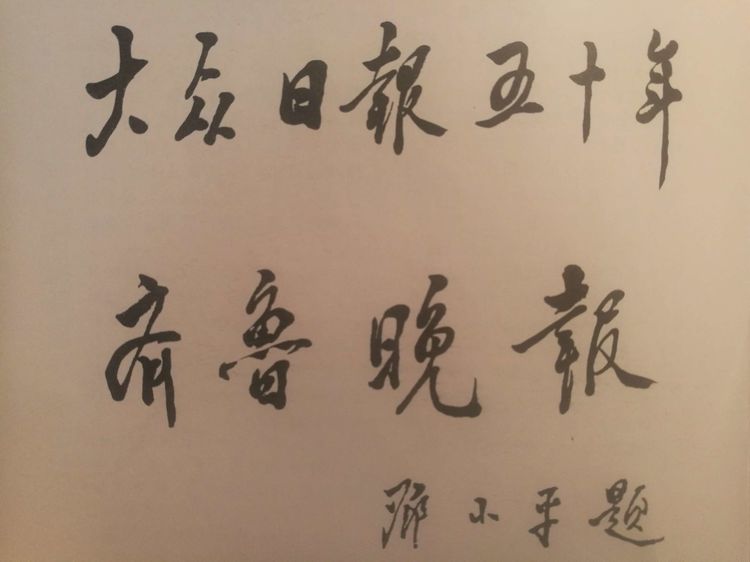 大众日報五十年
齐魯晚報
鄧小平题